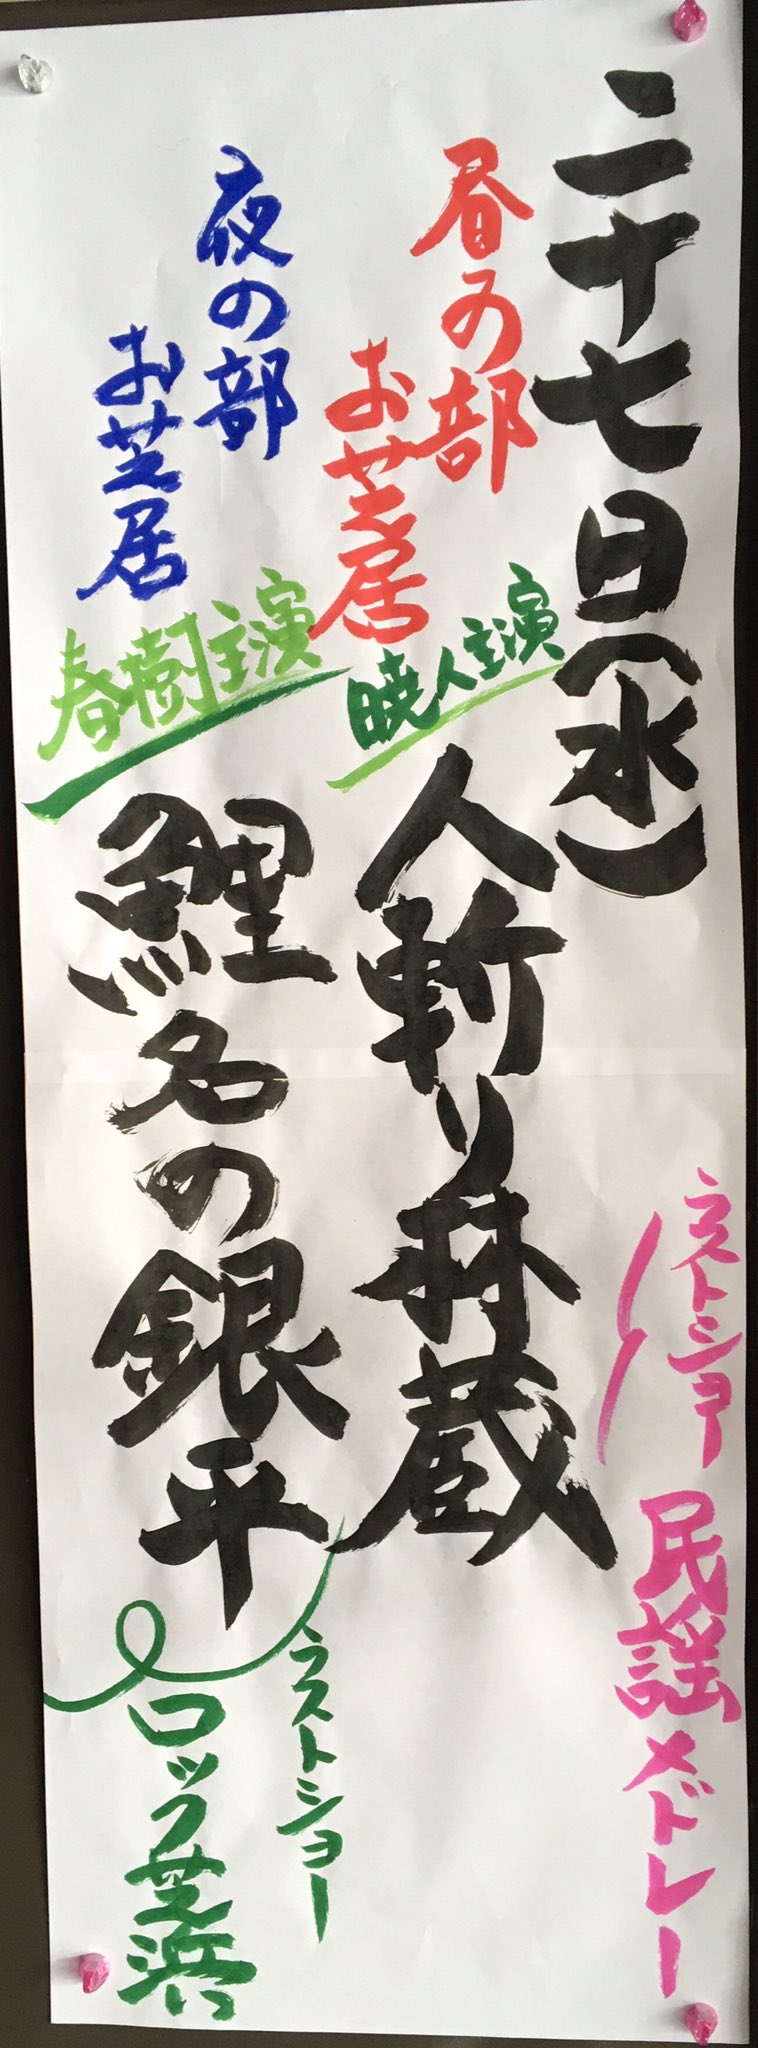 二十七日(水)
昼の部
お芝居
暁人主演
人斬り林蔵
ラストショー
民謡メドレー
夜の部
お芝居
春樹主演
鯉名の銀平
ラストショー
ロック芝浜